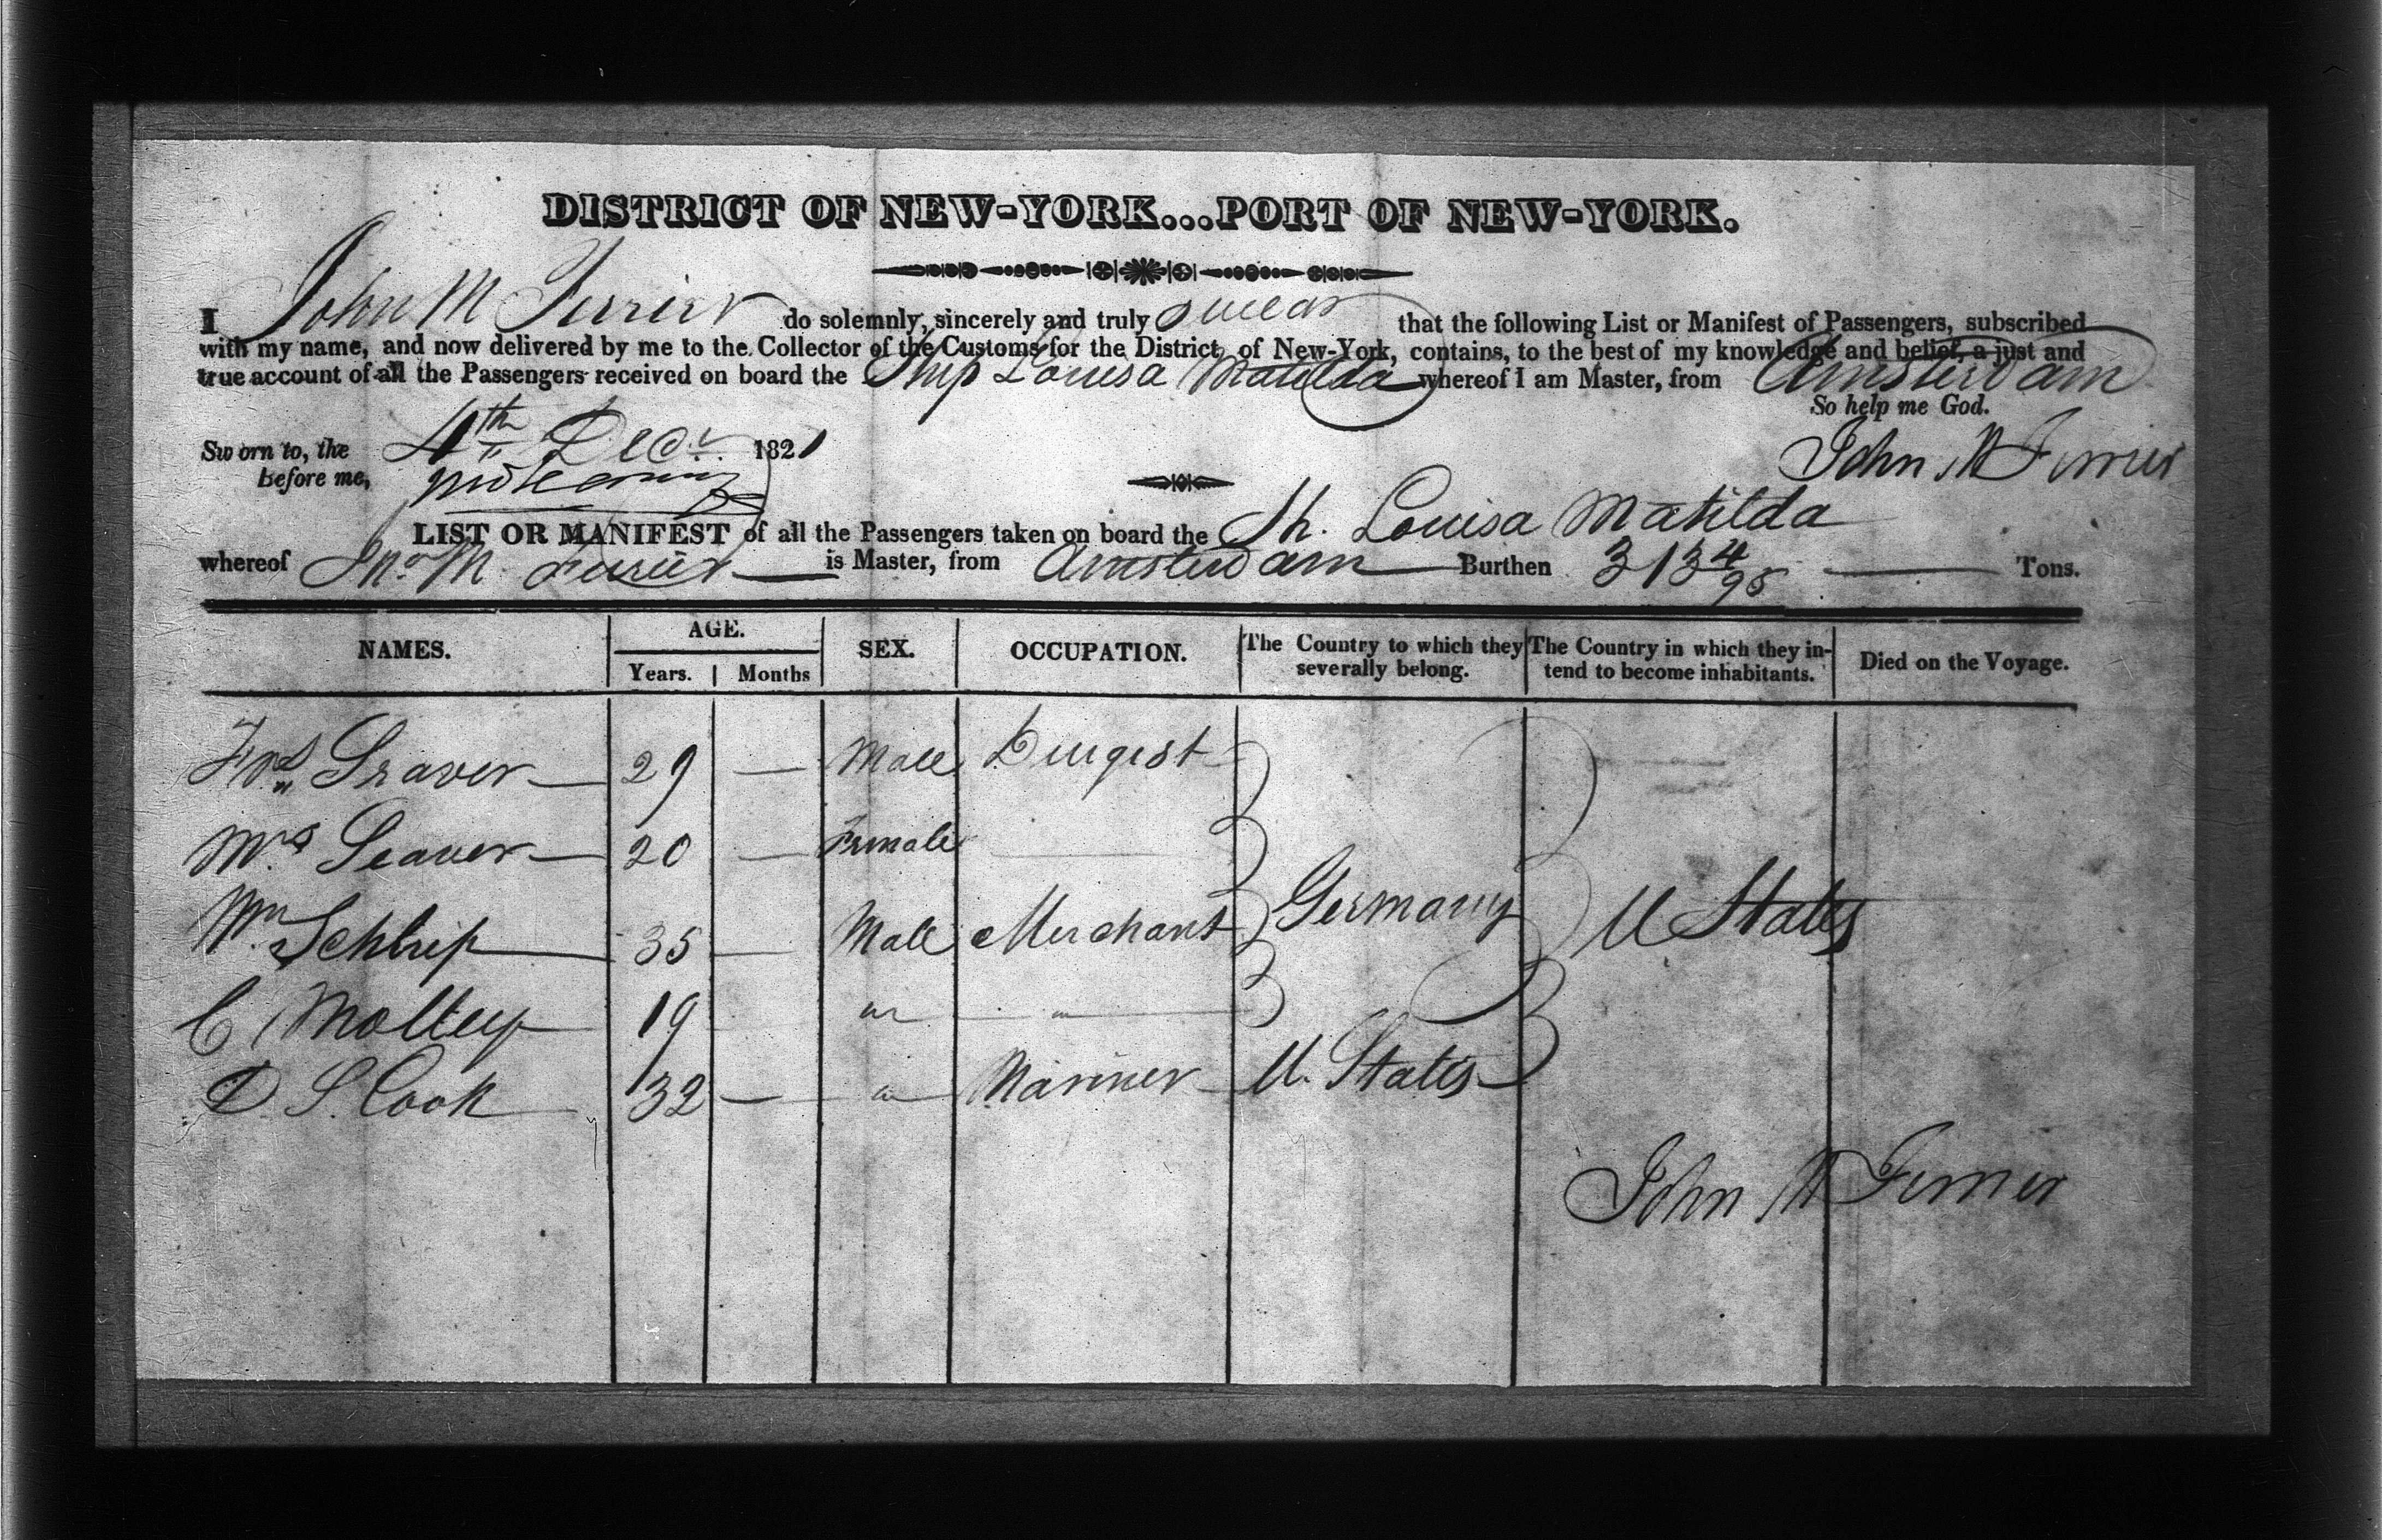 DISTRICT OF NEW-YORK...PORT OF NEW-YORK.
I John M Ferrier do solemnly, sincerely and truly swear that the following List or Manifest of Passengers, subscribed
with my name, and now delivered by me to the Collector of the Customs for the District of New-York, contains, to the best of my knowledge and belief, a just and
true account of all the Passengers received on board the Ship Louisa Matilda whereof I am Master, from Amsterdam
So help me God.
Sworn to, the 4th Decr 1821 John M Ferrier
before me,
LIST OR MANIFEST of all the Passengers taken on board the Sh. Louisa Matilda
whereof Jno. M. Ferrier is Master, from Amsterdam Burthen 313 4/95 Tons.
NAMES. AGE. SEX. OCCUPATION. The Country to which they severally belong. The Country in which they intend to become inhabitants. Died on the Voyage.
Years. Months
29 — Male Drugist
Mrs Seaver 20 — Female —
Wm 35 — Male Merchant Germany U States
C 19 " "
D. S. Cook 32 — " Mariner U. States
John M Ferrier